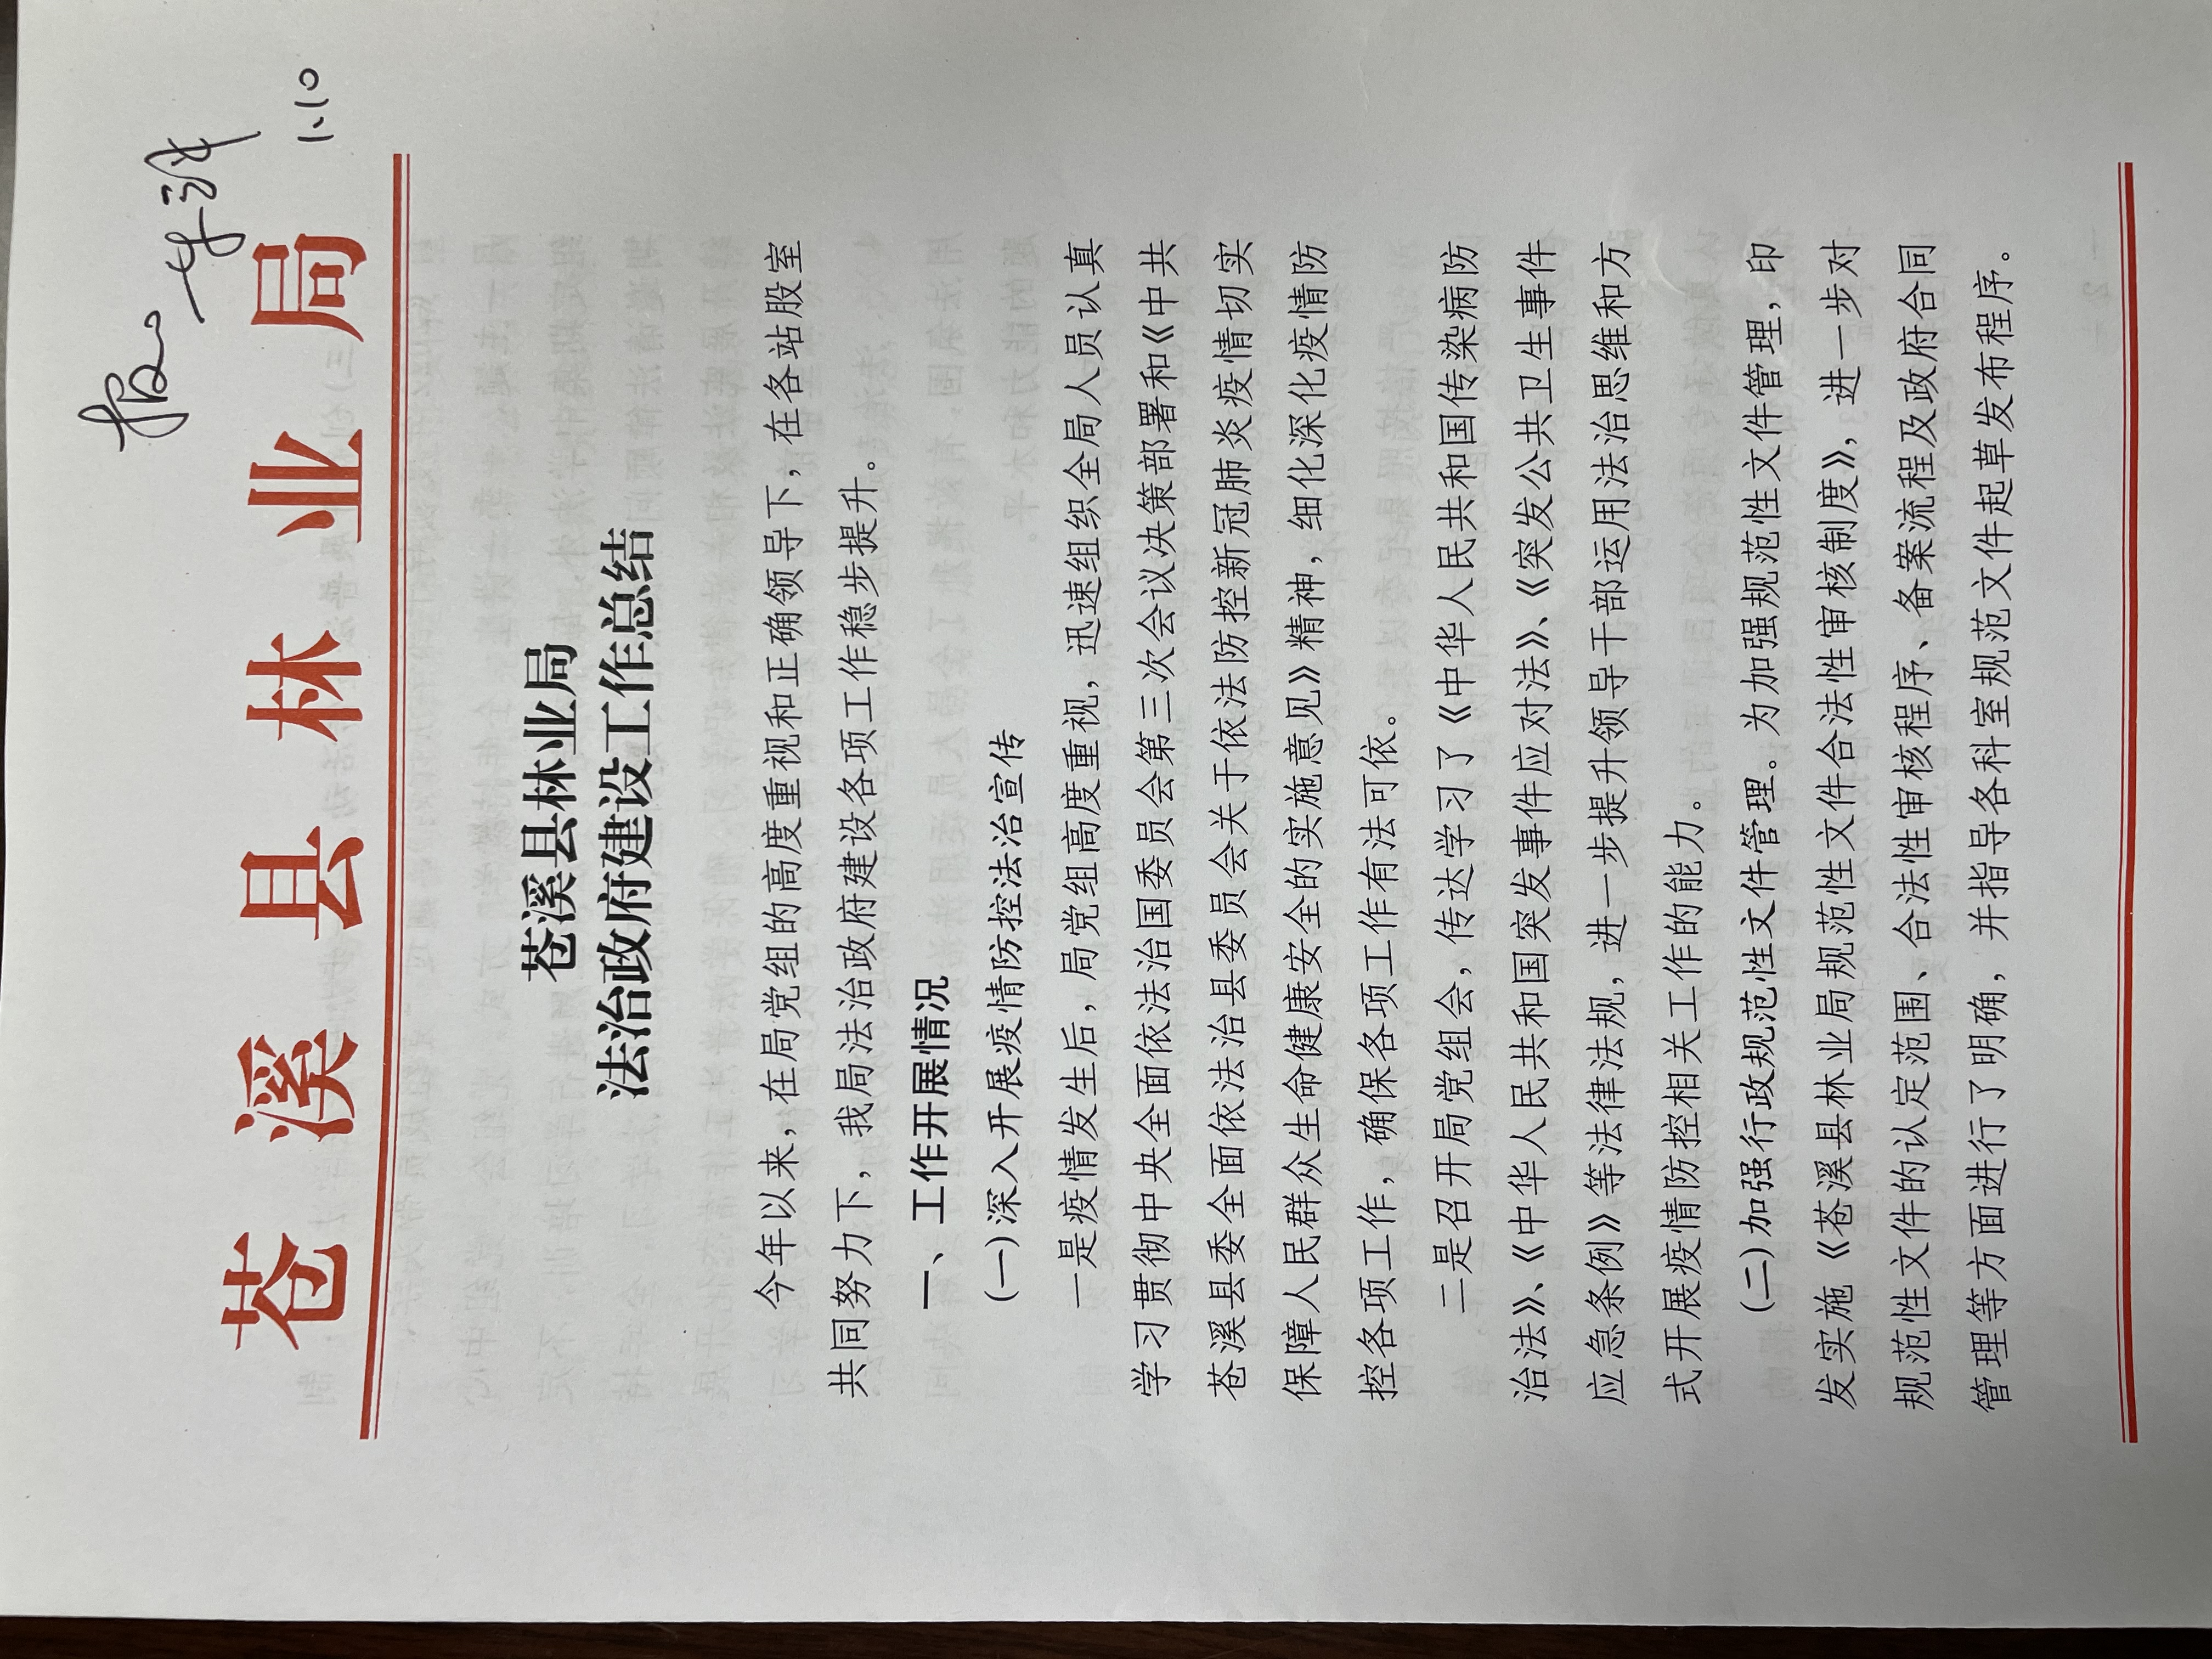 报。
1.10
苍溪县林业局
苍溪县林业局
法治政府建设工作总结
今年以来，在局党组的高度重视和正确领导下，在各站股室
共同努力下，我局法治政府建设各项工作稳步提升。
一、工作开展情况
（一）深入开展疫情防控法治宣传
一是疫情发生后，局党组高度重视，迅速组织全局人员认真
学习贯彻中央全面依法治国委员会第三次会议决策部署和《中共
苍溪县委全面依法治县委员会关于依法防控新冠肺炎疫情切实
保障人民群众生命健康安全的实施意见》精神，细化深化疫情防
控各项工作，确保各项工作有法可依。
二是召开局党组会，传达学习了《中华人民共和国传染病防
治法》、《中华人民共和国突发事件应对法》、《突发公共卫生事件
应急条例》等法律法规，进一步提升领导干部运用法治思维和方
式开展疫情防控相关工作的能力。
（二）加强行政规范性文件管理。为加强规范性文件管理，印
发实施《苍溪县林业局规范性文件合法性审核制度》，进一步对
规范性文件的认定范围、合法性审核程序、备案流程及政府合同
管理等方面进行了明确，并指导各科室规范文件起草发布程序。